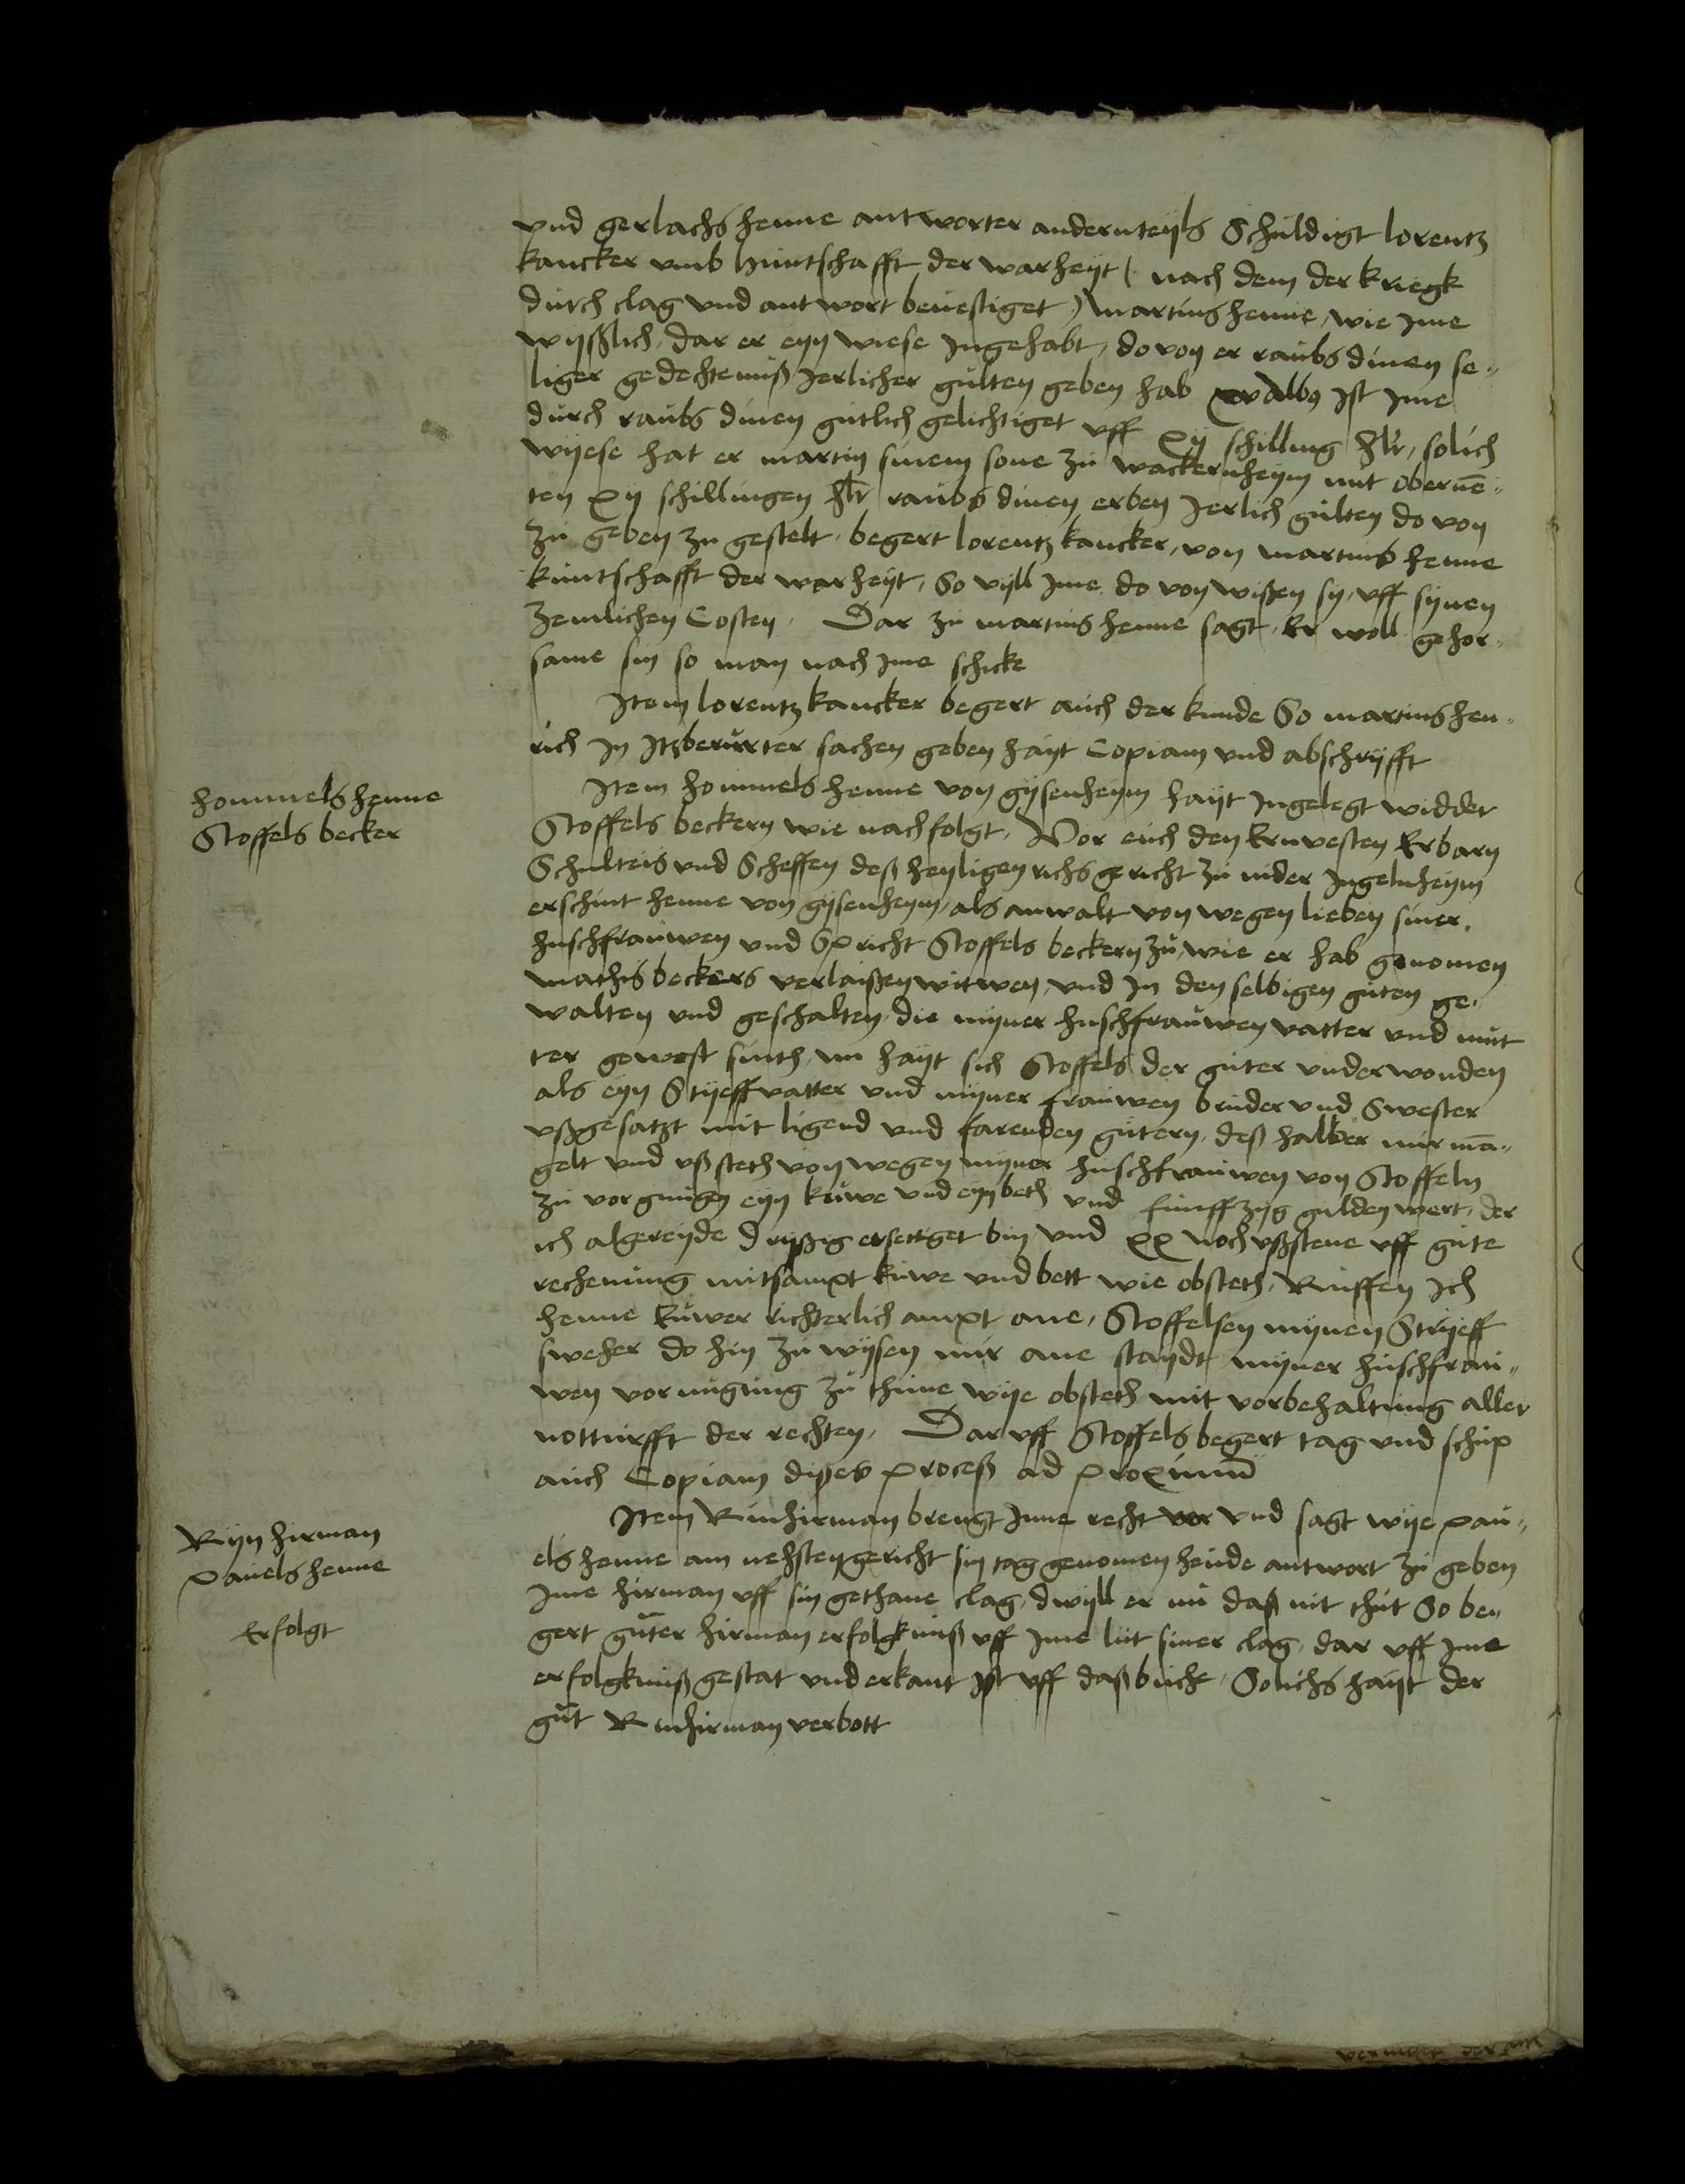 vnd gerlachs henne antworter andernteyls Schuldigt lorentz
kancker vmb kuntschafft der warheyt (nach dem der kriegk
durch clag vnd antwort beuestiget) martins henne, wie Ime
wyßlich, dar er eyn wiese Ingehabt, do von er raubs dinen se-
liger gedechteniß Jerlicher gulten geben hab albus Ist Ime
durch raubs dinen gutlich gelichtiget vff xij schilling hlr, solich
wyese hat er martin sinem sone zu wackernheym mit oberne-
ten xij schillingen hlr raubs dinen erben Jerlich gulten do von
zu geben zu gestelt, begert lorentz kancker, von martins henne
kuntschafft der warheyt, So vyll Ime do von wißen sy, vff synen
zemlichen Costen, Dar zu martins henne sagt, Er woll gehor-
same sin so man nach Ime schicke
Item lorentz kancker begert auch der kunde So martins hen-
rich In Itzberurter sachen geben hayt Copiam vnd abschryfft
hommels henne
Stoffels becker
Item hommels henne von gysenheym hayt Ingelegt widder
Stoffels beckern wie nachfolgt, Vor euch den Ernvesten Erbarn
Schulteis vnd Scheffen deß heyligen richs gericht zu nider Ingelnheym
erschint henne von gysenheym, als anwalt von wegen lieben siner
huschfrauwen vnd Spricht Stoffels beckern zu, wie er hab genomen
mathis beckers verlaißen witwen, vnd In den selbigen guten ge-
walten vnd geschalten, die myner huschfrauwen vatter vnd mut
ter gewest sinth, nu hayt sich Stoffels der guter vnderwonden
als eyn Styeffvatter vnd myner frauwen bruder vnd Swester
vßgesatzt mit ligend vnd farenden gutern, deß halber mir ma-
gelt vnd vß steth von wegen myner huschfrauwen von Stoffeln
zu vor gnugen eyn kuwe vnd eyn beth vnd funffzyg gulden wert, der
ich algereyde dryßig ersettget bin vnd xx noch vßstene vff gute
rechenung mitsampt kuwe vnd bett wie obsteth, Ruffen Ich
henne Euwer richterlich ampt ane, Stoffelsen mynen Stryeff
sweher do hin zu wysen mir ane staydt myner huschfrau-
wen vornugung zu thune wye obsteth mit vorbehaltung aller
notturfft der rechten, Dar vff Stoffels begert tag vnd schup
auch Copiam dißes proceß ad proximum
Ryn hirman
Pauels henne
Erfolgt
Item Rinhirman brengt Inne recht vor vnd sagt wye pau-
els henne am nehsten gericht sin tag genomen heude antwort zu geben
Ime hirman vff sin gethane clag, dwyll er nu das nit thut So be-
gert guter hirman erfolgkniß vff Ime lut siner clag, dar vff Ime
erfolgkniß gestat vnd erkant Ist vff daß buche, Solichs hayt der
gut Rinhirman verbott